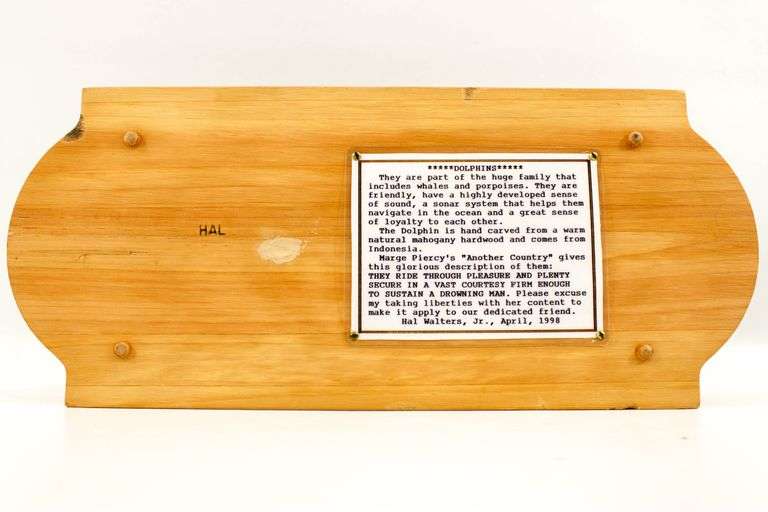 HAL
*****DOLPHINS*****
They are part of the huge family that
includes whales and porpoises. They are
friendly, have a highly developed sense
of sound, a sonar system that helps them
navigate in the ocean and a great sense
of loyalty to each other.
The Dolphin is hand carved from a warm
natural mahogany hardwood and comes from
Indonesia.
Marge Piercy's "Another Country" gives
this glorious description of them:
THEY RIDE THROUGH PLEASURE AND PLENTY
SECURE IN A VAST COURTESY FIRM ENOUGH
TO SUSTAIN A DROWNING MAN. Please excuse
my taking liberties with her content to
make it apply to our dedicated friend.
Hal Walters, Jr., April, 1998